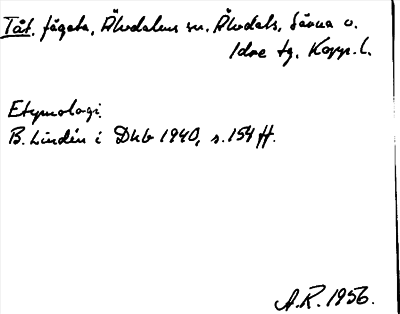 Tåt. fågata, Älvdalens sn. Älvdals, Särna o.
Idre tg. Kopp. l.
Etymologi.
B. Lindén i Dhb 1940, s. 154 ff.
A.R. 1956.